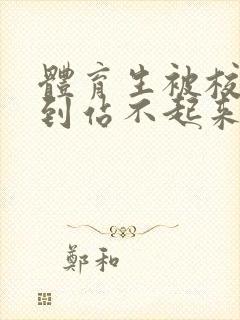 體育生被校
到佔不起來
鄭和